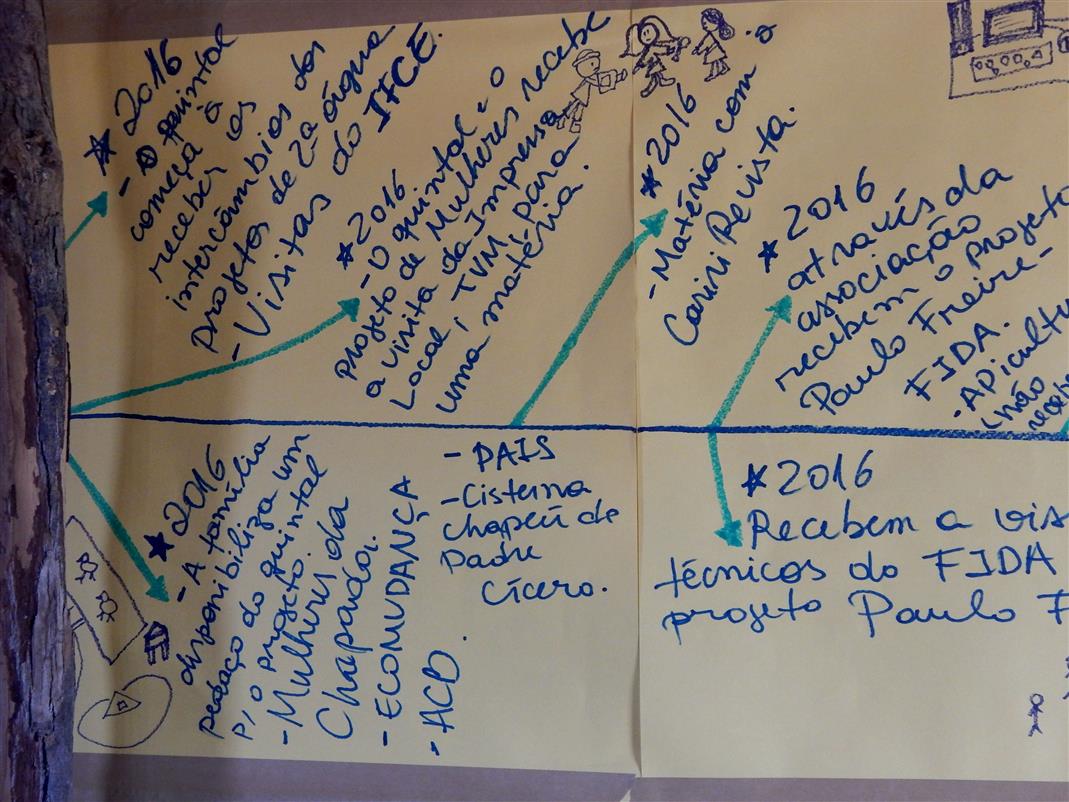 ★ 2016
- O quintal
começa a
receber os
intercâmbios dos
projetos de 2ª água
- Visitas do IFCE.
★ 2016
- O quintal e o
projeto de Mulheres recebe
a visita da Imprensa
Local, TVM para
uma matéria.
★ 2016
- Matéria com a
Cariri Revista.
★ 2016
através da
associação
recebem o projeto
Paulo Freire -
FIDA.
- Apicultu
(não
receb
★ 2016
- A família
disponibiliza um
pedaço do quintal
p/ o projeto.
- Mulheres da
Chapada.
- ECOMUDANÇA
- ACD.
- PAIS
- Cisterna
Chapéu de
Padre
Cícero.
★ 2016
Recebem a vis
técnicos do FIDA
projeto Paulo F